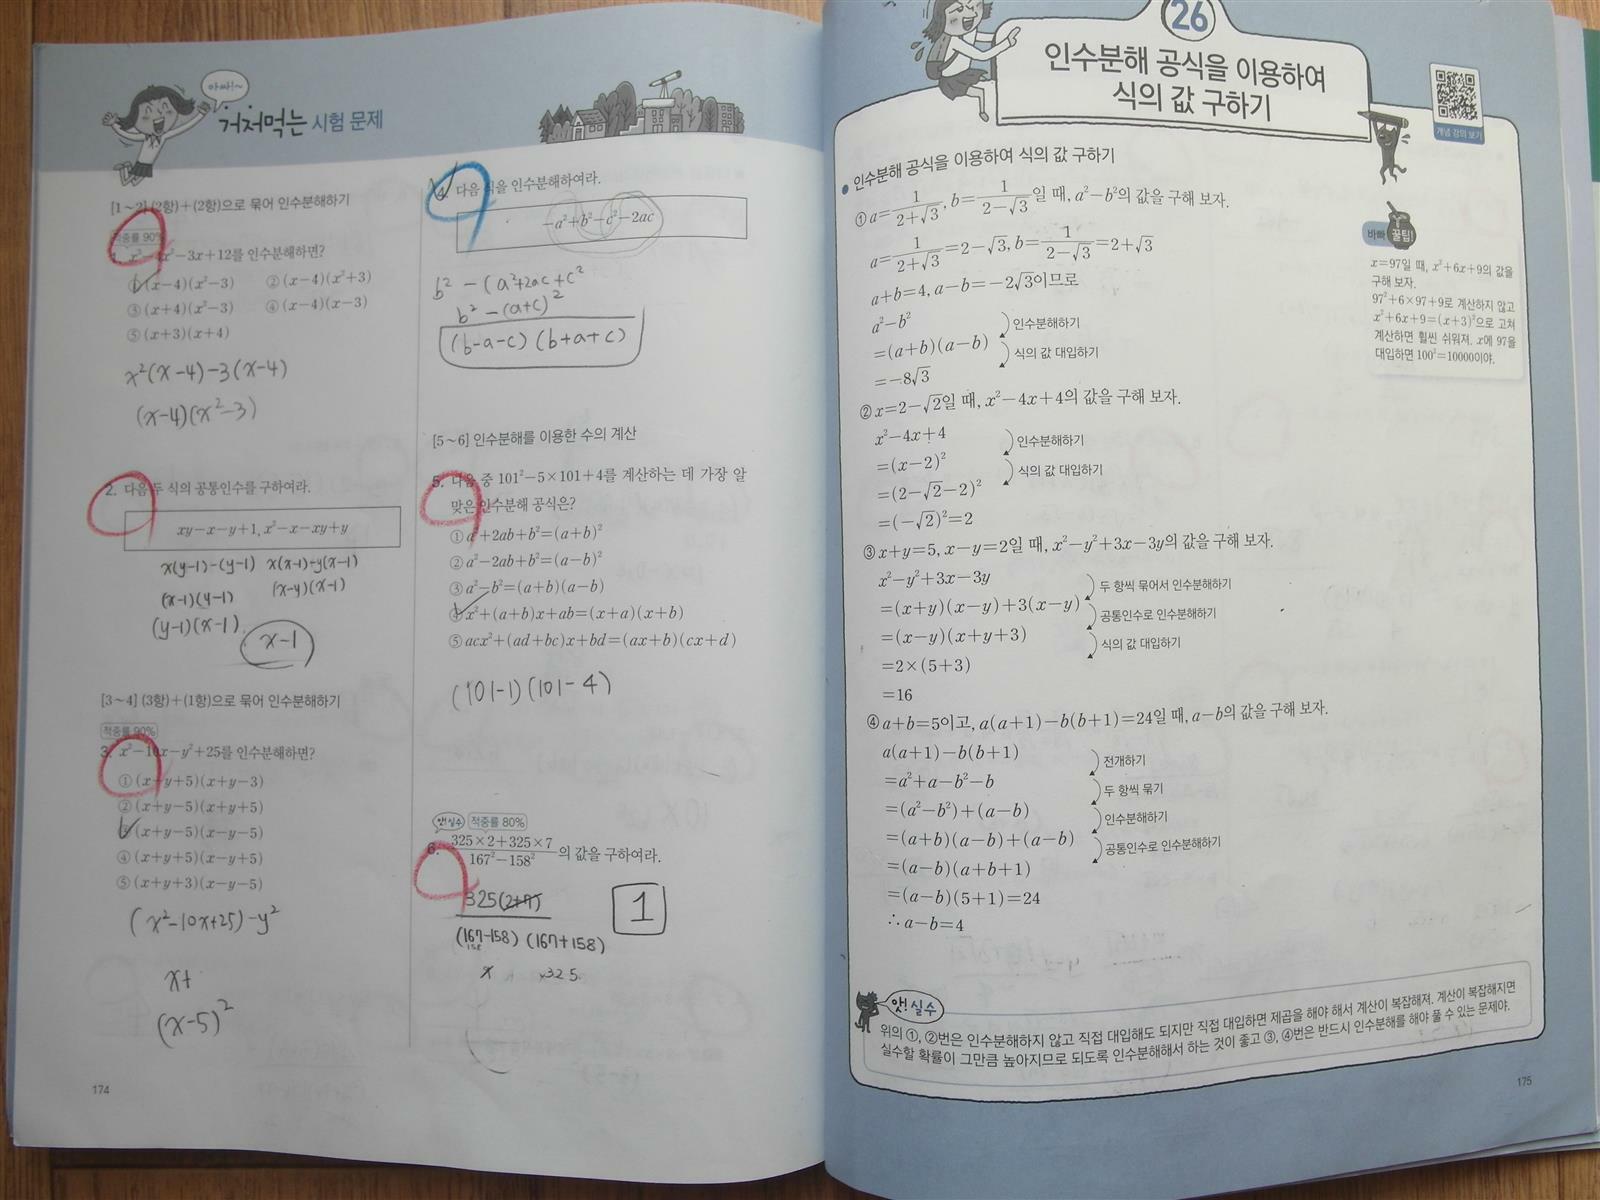 아빠!~
거저먹는 시험 문제
[1~2] (2항)+(2항)으로 묶어 인수분해하기
적중률 90%
1. x³-4x²-3x+12를 인수분해하면?
(x-4)(x²-3) ②(x-4)(x²+3)
③(x+4)(x²-3) ④(x-4)(x-3)
⑤(x+3)(x+4)
x²(x-4)-3(x-4)
(x-4)(x²-3)
2. 다음 두 식의 공통인수를 구하여라.
xy-x-y+1, x²-x-xy+y
x(y-1)-(y-1) x(x-1)-y(x-1)
(x-1)(y-1) (x-y)(x-1)
(y-1)(x-1)
x-1
[3~4] (3항)+(1항)으로 묶어 인수분해하기
적중률 90%
3. x²-10x-y²+25를 인수분해하면?
①(x+y+5)(x+y-3)
②(x+y-5)(x+y+5)
(x+y-5)(x-y-5)
④(x+y+5)(x-y+5)
⑤(x+y+3)(x-y-5)
(x²-10x+25)-y²
x+
(x-5)²
174
4. 다음 식을 인수분해하여라.
-a²+b²-c²-2ac
b²-(a²+2ac+c²
b²-(a+c)²
(b-a-c)(b+a+c)
[5~6] 인수분해를 이용한 수의 계산
5. 다음 중 101²-5×101+4를 계산하는 데 가장 알
맞은 인수분해 공식은?
①a²+2ab+b²=(a+b)²
②a²-2ab+b²=(a-b)²
③a²-b²=(a+b)(a-b)
④x²+(a+b)x+ab=(x+a)(x+b)
⑤acx²+(ad+bc)x+bd=(ax+b)(cx+d)
(101-1)(101-4)
앗!실수 적중률 80%
6. (325×2+325×7)/(167²-158²)의 값을 구하여라.
325(2+7)
(167-158)(167+158)
325
1
26
인수분해 공식을 이용하여
식의 값 구하기
개념 강의 보기
● 인수분해 공식을 이용하여 식의 값 구하기
①a=1/(2+√3), b=1/(2-√3)일 때, a²-b²의 값을 구해 보자.
a=1/(2+√3)=2-√3, b=1/(2-√3)=2+√3
a+b=4, a-b=-2√3이므로
a²-b²
인수분해하기
=(a+b)(a-b)
식의 값 대입하기
=-8√3
②x=2-√2일 때, x²-4x+4의 값을 구해 보자.
x²-4x+4
인수분해하기
=(x-2)²
식의 값 대입하기
=(2-√2-2)²
=(-√2)²=2
③x+y=5, x-y=2일 때, x²-y²+3x-3y의 값을 구해 보자.
x²-y²+3x-3y
두 항씩 묶어서 인수분해하기
=(x+y)(x-y)+3(x-y)
공통인수로 인수분해하기
=(x-y)(x+y+3)
식의 값 대입하기
=2×(5+3)
=16
④a+b=5이고, a(a+1)-b(b+1)=24일 때, a-b의 값을 구해 보자.
a(a+1)-b(b+1)
전개하기
=a²+a-b²-b
두 항씩 묶기
=(a²-b²)+(a-b)
인수분해하기
=(a+b)(a-b)+(a-b)
공통인수로 인수분해하기
=(a-b)(a+b+1)
=(a-b)(5+1)=24
∴ a-b=4
바빠 꿀팁!
x=97일 때, x²+6x+9의 값을
구해 보자.
97²+6×97+9로 계산하지 않고
x²+6x+9=(x+3)²으로 고쳐
계산하면 훨씬 쉬워져. x에 97을
대입하면 100²=10000이야.
앗!실수
위의 ①, ②번은 인수분해하지 않고 직접 대입해도 되지만 직접 대입하면 제곱을 해야 해서 계산이 복잡해져. 계산이 복잡해지면
실수할 확률이 그만큼 높아지므로 되도록 인수분해해서 하는 것이 좋고 ③, ④번은 반드시 인수분해를 해야 풀 수 있는 문제야.
175